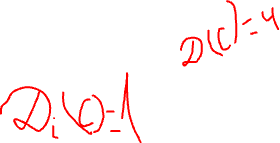 D(C)=4
D_i(C)=1